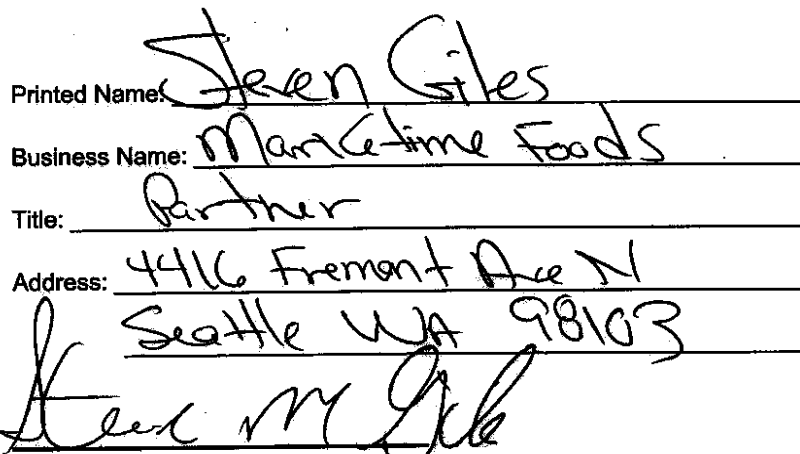 Printed Name: Steven Giles
Business Name: Marketime Foods
Title: Partner
Address: 4416 Fremont Ave N
Seattle WA 98103
Steve M Gile